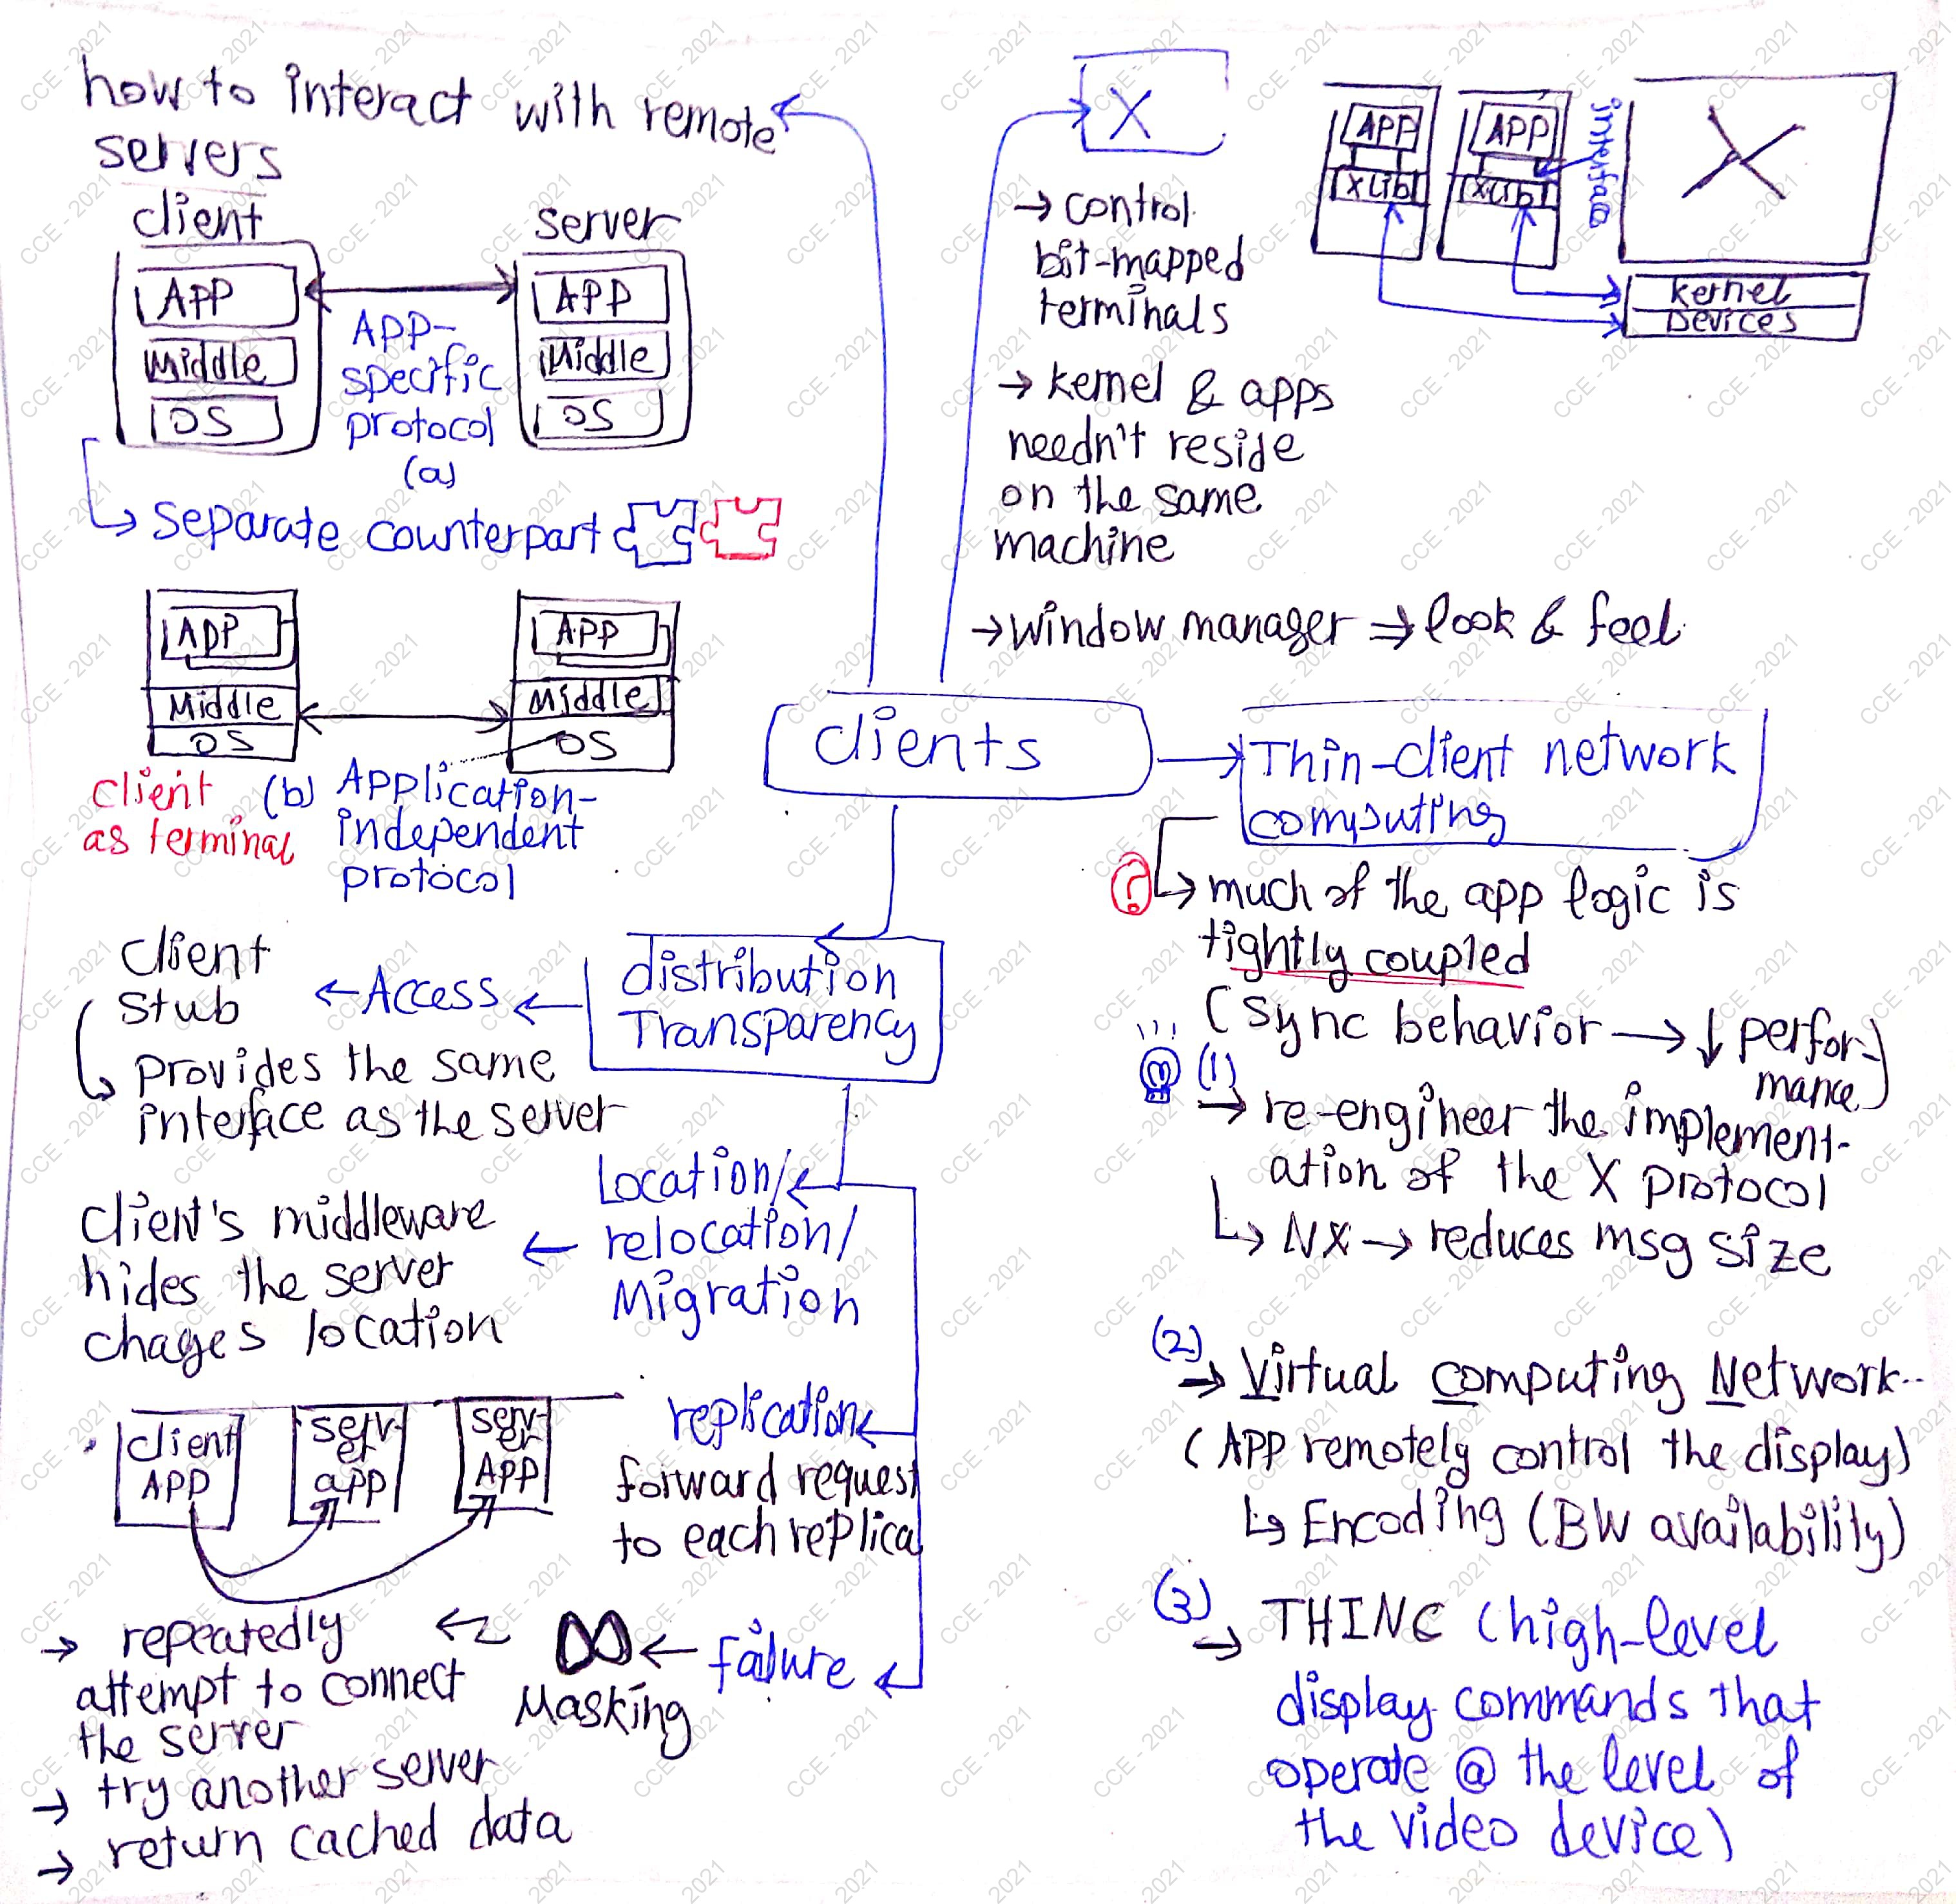 how to interact with remote
servers
client
server
APP
Middle
OS
APP
Middle
OS
APP-
specific
protocol
(a)
separate counterpart
APP
Middle
OS
APP
Middle
OS
client
as terminal
(b) Application-
independent
protocol
X
→ control
bit-mapped
terminals
→ kernel & apps
needn't reside
on the same
machine
→ window manager ⇒ look & feel
APP
XLib
APP
XLib
interface
X
Kernel
Devices
clients
Thin-client network
computing
?
much of the app logic is
tightly coupled
(Sync behavior → ↓ perfor-
mance)
(1)
→ re-engineer the implement-
ation of the X protocol
↳ NX → reduces msg size
(2)
→ Virtual Computing Network..
(APP remotely control the display)
↳ Encoding (BW availability)
(3)
→ THINC (high-level
display commands that
operate @ the level of
the video device)
distribution
Transparency
← Access ←
client
stub
provides the same
interface as the server
Location/
relocation/
Migration
client's middleware
hides the server
chages location
replication
forward request
to each replica
client
APP
serv-
er
app
serv-
er
APP
failure
Masking
→ repeatedly
attempt to connect
the server
→ try another server
→ return cached data
CCE - 2021